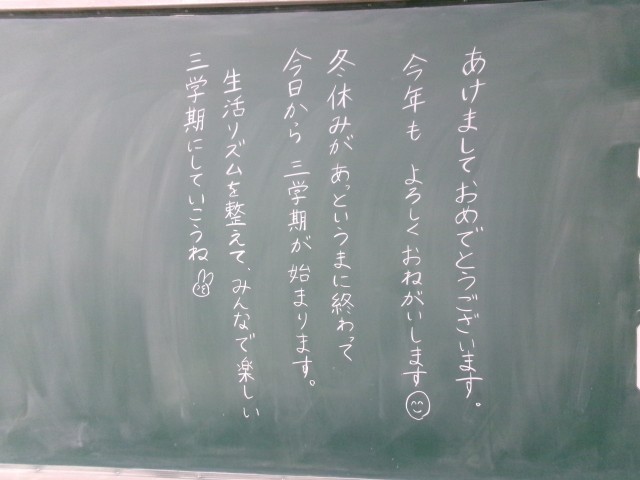 あけましておめでとうございます。
今年も よろしくおねがいします
冬休みが あっというまに終わって
今日から 三学期が 始まります。
生活リズムを整えて、みんなで楽しい
三学期にしていこうね